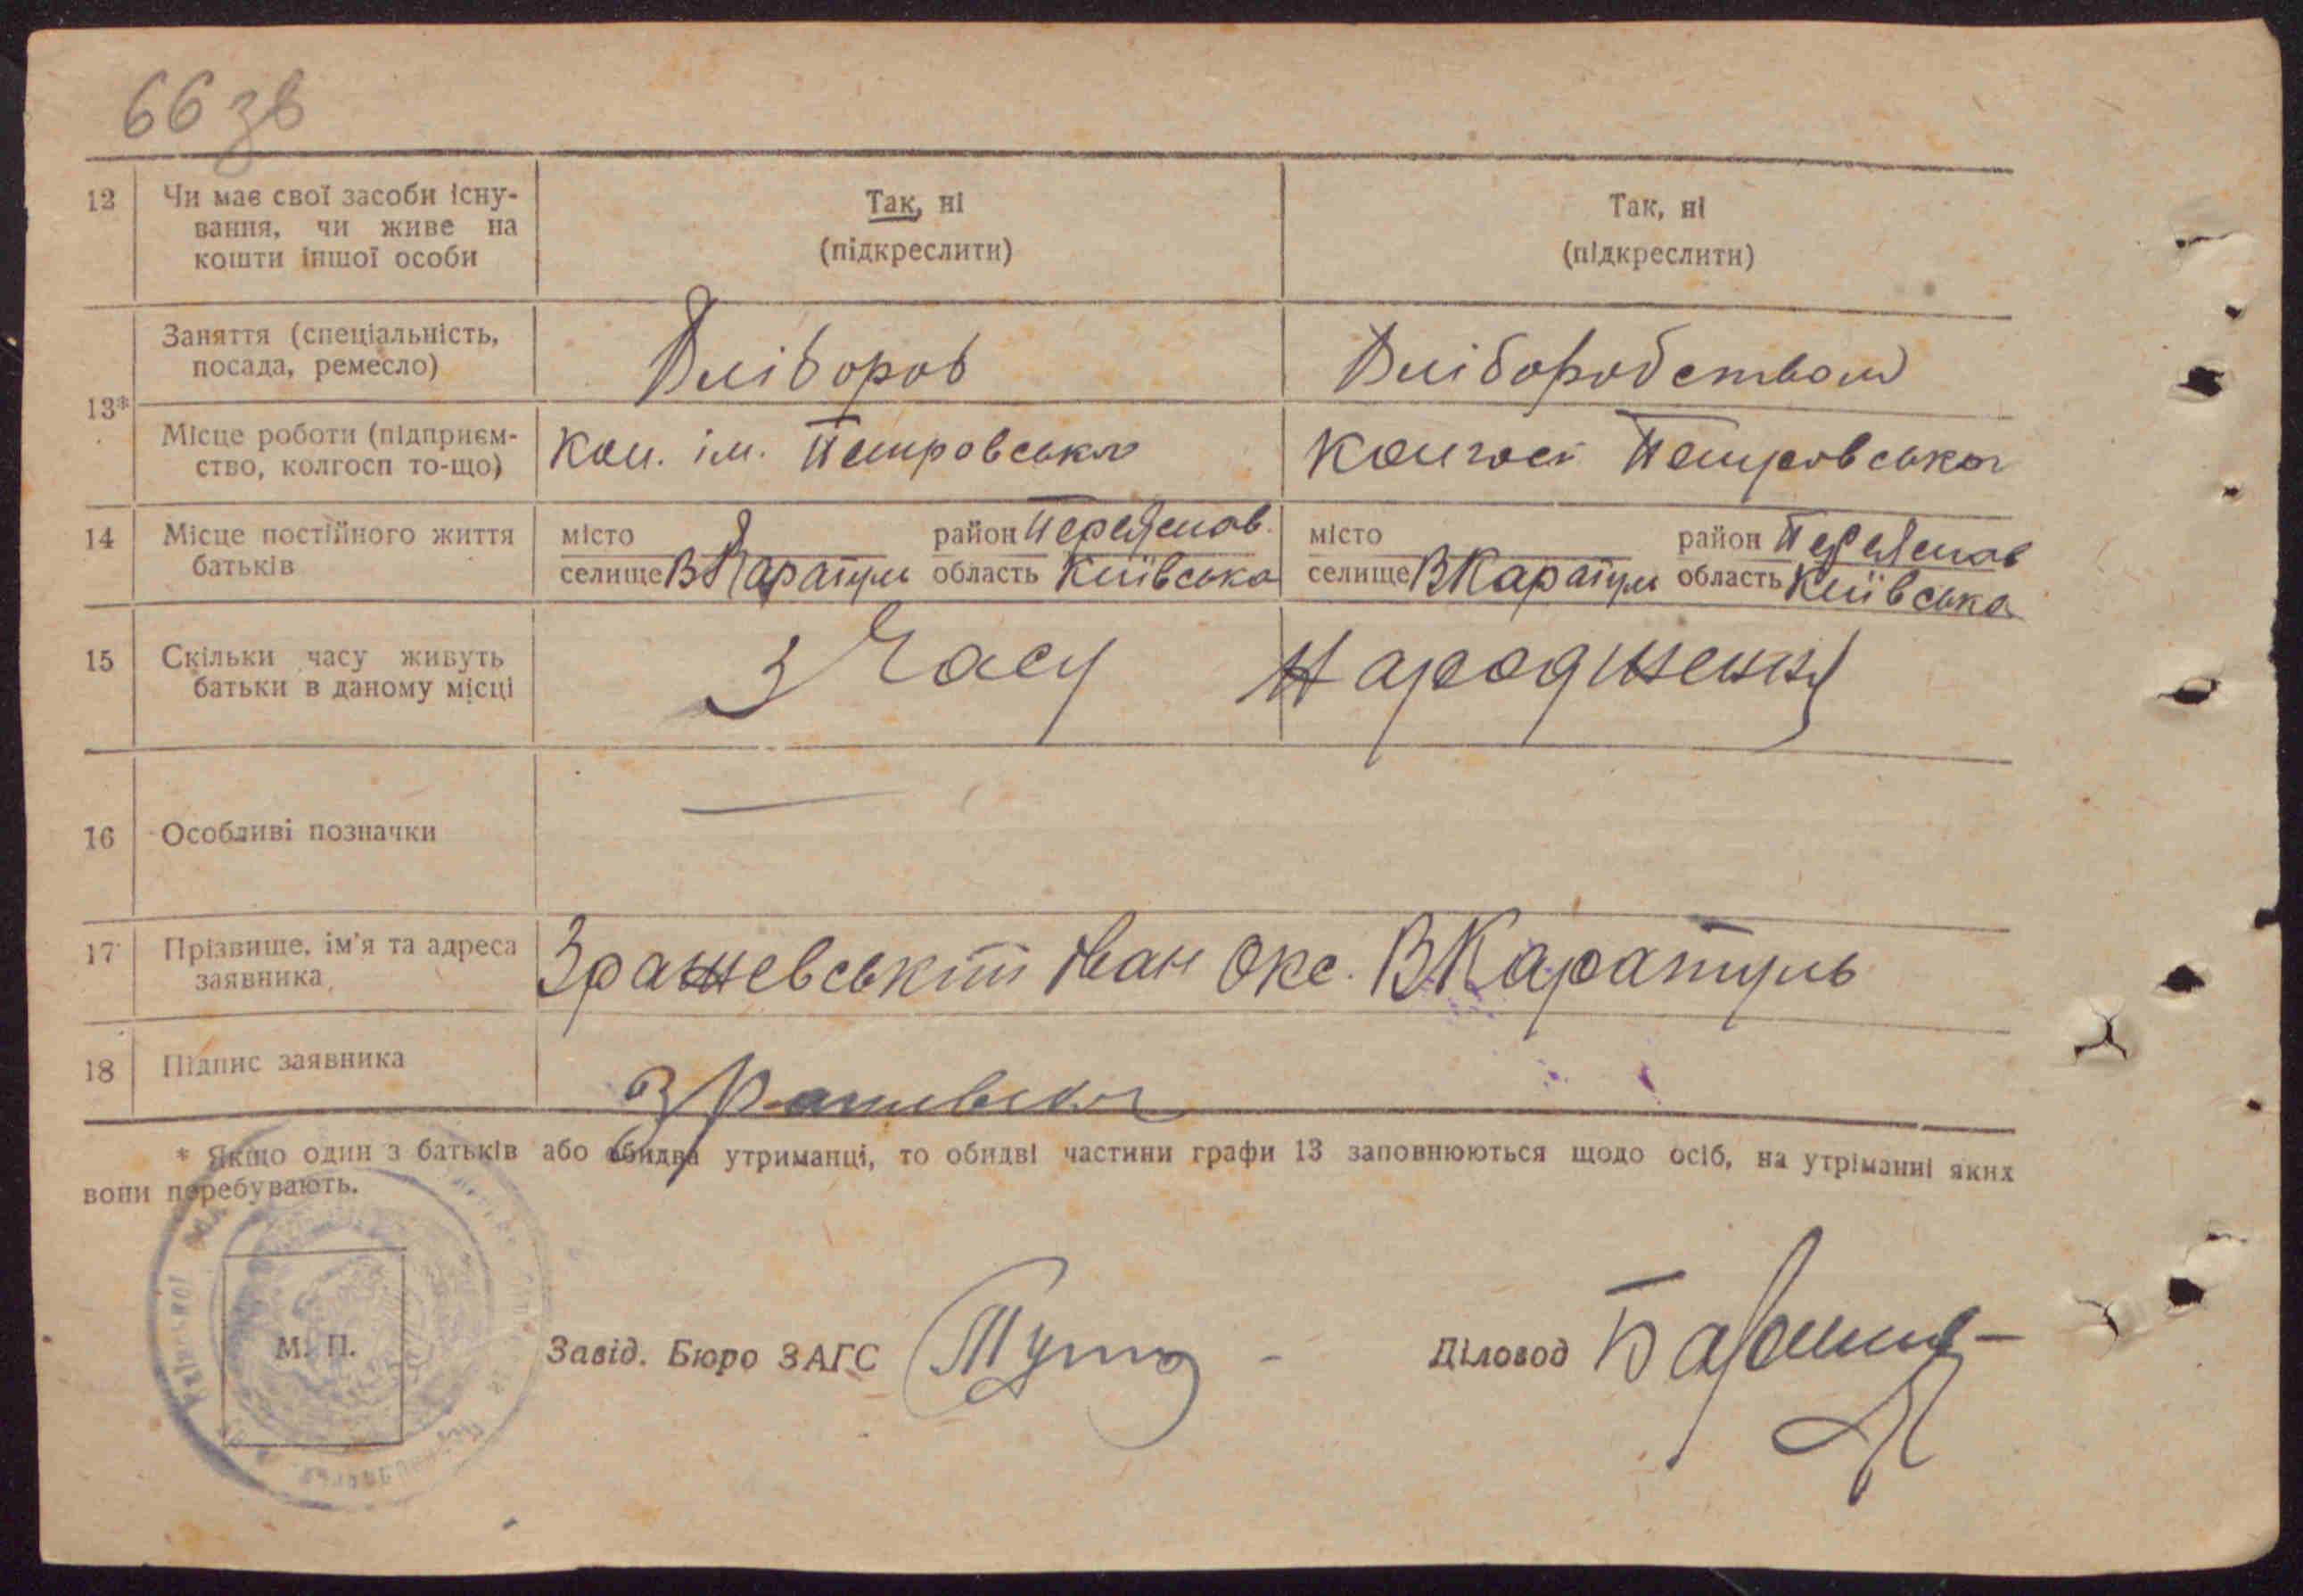 66 зв
12 Чи має свої засоби існу- Так, ні Так, ні
вання, чи живе на (підкреслити) (підкреслити)
кошти іншої особи
Заняття (спеціальність, Хлібороб Хліборобством
посада, ремесло)
13*
Місце роботи (підприєм- Кол. ім. Петровсько Колгосп Петровського
ство, колгосп то-що)
14 Місце постійного життя місто район Переяслав. місто район Переяслав
батьків селище ВКаратуль область Київська селище ВКаратуль область Київська
15 Скільки часу живуть З Часу Народження
батьки в даному місці
16 Особливі позначки —
17 Прізвище, ім'я та адреса Зражевський Іван Окс. ВКаратуль
заявника
18 Підпис заявника
* Якщо один з батьків або обидва утриманці, то обидві частини графи 13 заповнюються щодо осіб, на утріманні яких
вони перебувають.
М. П. Завід. Бюро ЗАГС Діловод